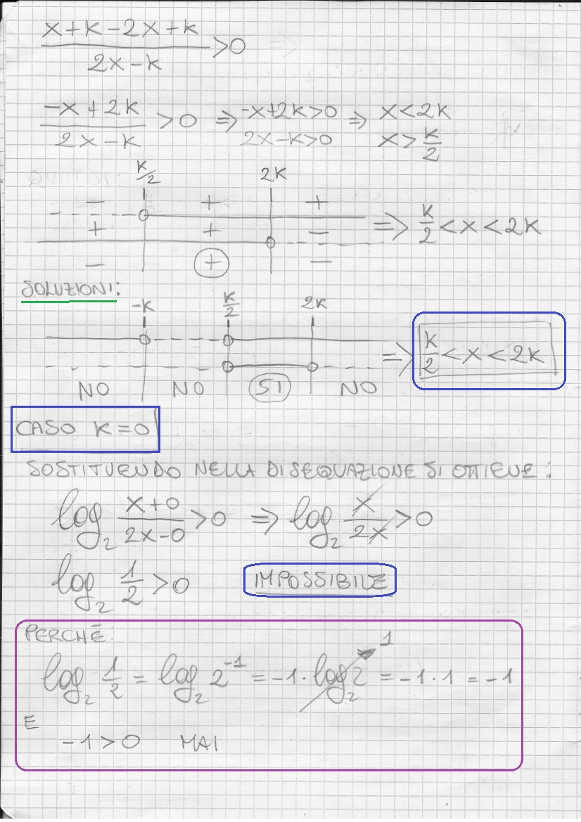 x+k-2x+k / 2x-k >0
-x+2k / 2x-k >0 ⇒ -x+2k>0 ⇒ x<2k
2x-k>0 x>k/2
k/2 2k
- + +
+ + - ⇒ k/2<x<2k
- + -
SOLUZIONI:
-k k/2 2k
⇒ k/2<x<2k
NO NO SI NO
CASO K=0
SOSTITUENDO NELLA DISEQUAZIONE SI OTTIENE:
log₂ x+0 / 2x-0 >0 ⇒ log₂ x/2x >0
log₂ 1/2 >0 IMPOSSIBILE
PERCHÉ:
log₂ 1/2 = log₂ 2⁻¹ = -1·log₂2 1 = -1·1 = -1
E
-1>0 MAI